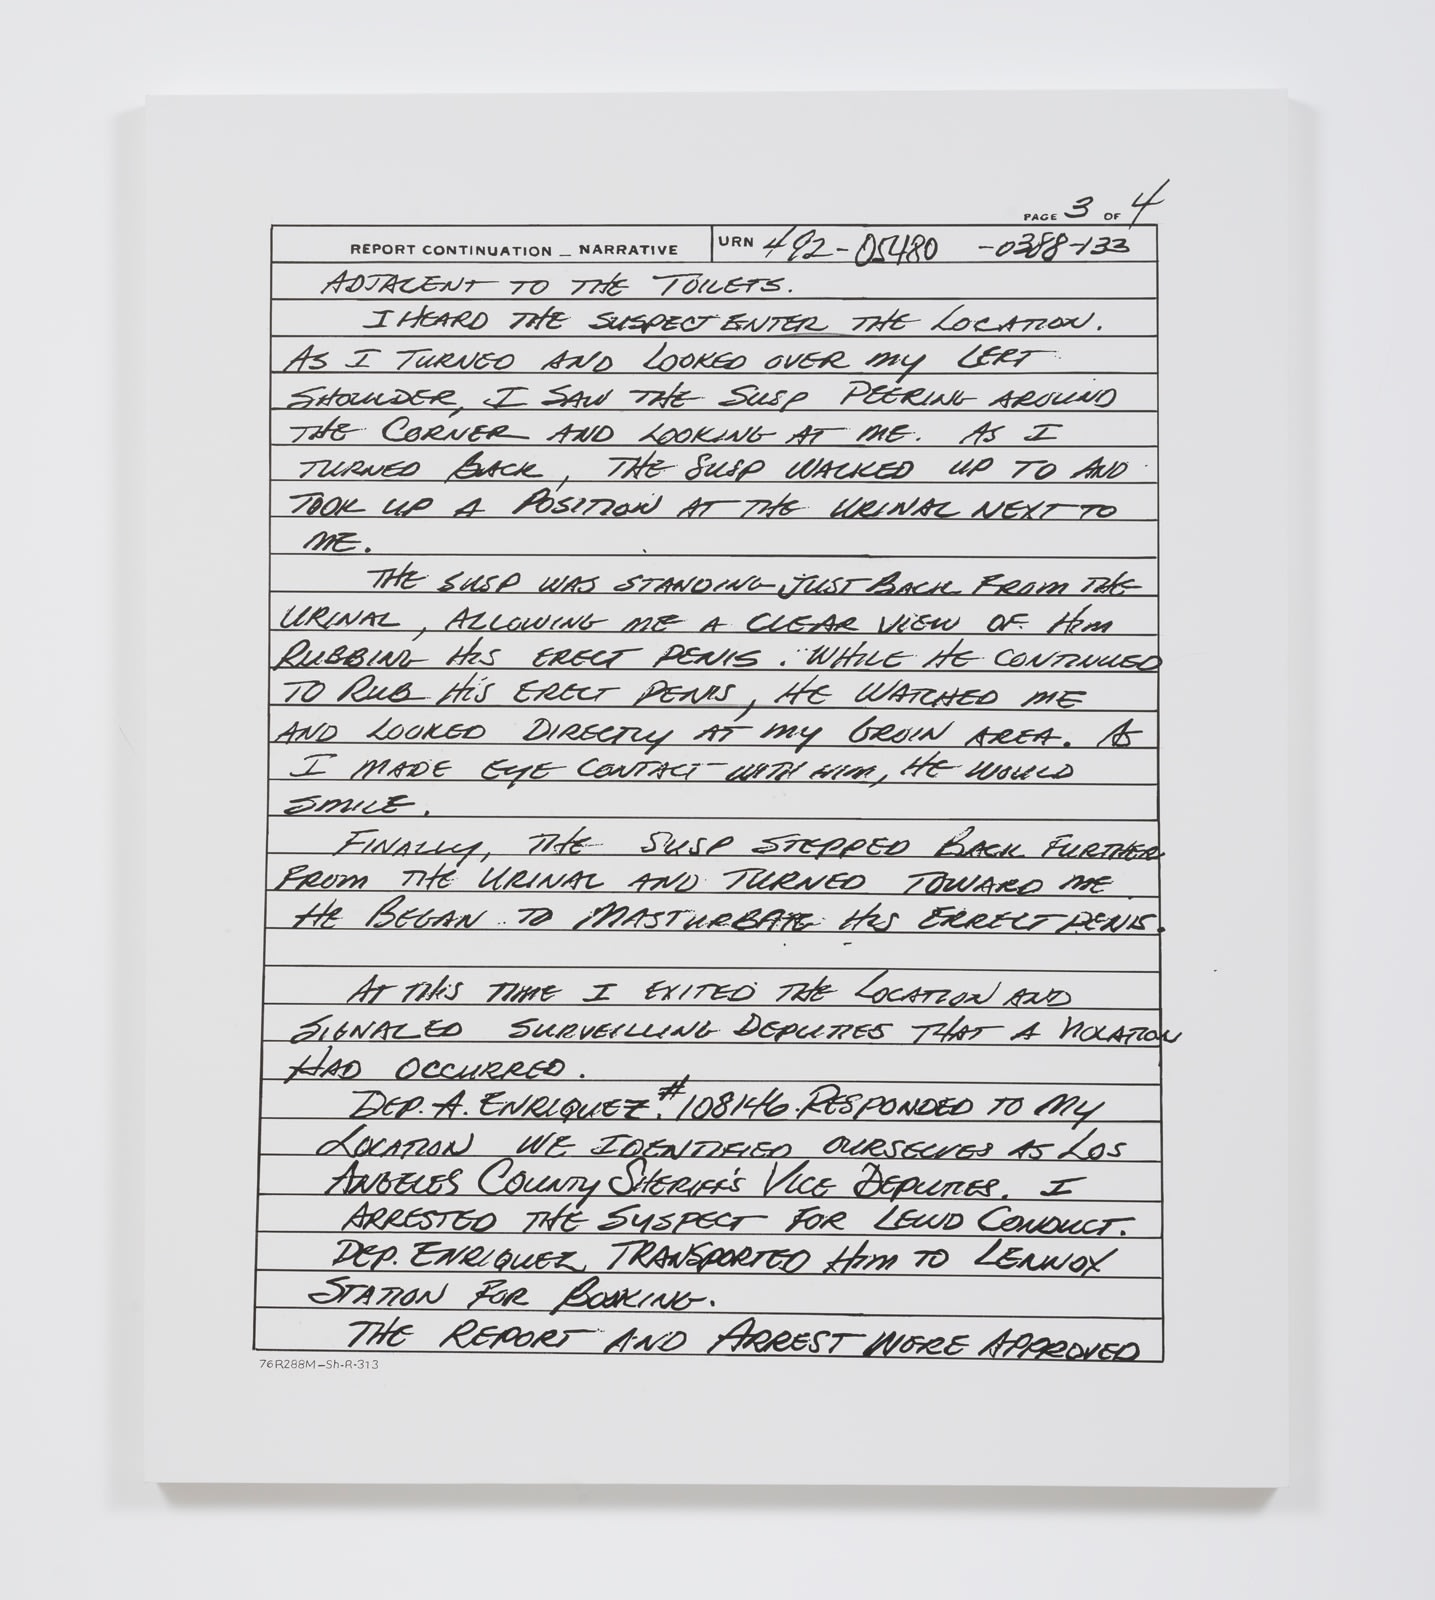 PAGE 3 OF 4
REPORT CONTINUATION – NARRATIVE URN 492-05480 -0388-133
ADJACENT TO THE TOILETS.
I HEARD THE SUSPECT ENTER THE LOCATION.
AS I TURNED AND LOOKED OVER MY LEFT
SHOULDER, I SAW THE SUSP PEERING AROUND
THE CORNER AND LOOKING AT ME. AS I
TURNED BACK, THE SUSP WALKED UP TO AND
TOOK UP A POSITION AT THE URINAL NEXT TO
ME.
THE SUSP WAS STANDING JUST BACK FROM THE
URINAL, ALLOWING ME A CLEAR VIEW OF HIM
RUBBING HIS ERECT PENIS. WHILE HE CONTINUED
TO RUB HIS ERECT PENIS, HE WATCHED ME
AND LOOKED DIRECTLY AT MY GROIN AREA. AS
I MADE EYE CONTACT WITH HIM, HE WOULD
SMILE.
FINALLY, THE SUSP STEPPED BACK FURTHER
FROM THE URINAL AND TURNED TOWARD ME
HE BEGAN TO MASTURBATE HIS ERRECT PENIS.
AT THIS TIME I EXITED THE LOCATION AND
SIGNALED SURVEILLING DEPUTIES THAT A VIOLATION
HAD OCCURRED.
DEP. A. ENRIQUEZ #108146 RESPONDED TO MY
LOCATION WE IDENTIFIED OURSELVES AS LOS
ANGELES COUNTY SHERIFF'S VICE DEPUTIES. I
ARRESTED THE SUSPECT FOR LEWD CONDUCT.
DEP. ENRIQUEZ TRANSPORTED HIM TO LENNOX
STATION FOR BOOKING.
THE REPORT AND ARREST WERE APPROVED
76R288M-Sh-R-313